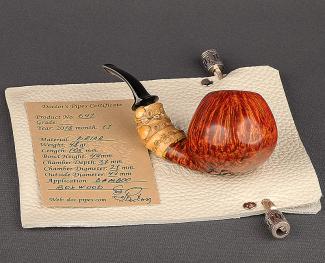 Doctor's Pipes Certificate
Product No: 042
Grade:
Year: 2018 month: 12
Material: BRIAR
Weight: 48 gr
Length: mm
Bowl Height: 44mm
Chamber Depth: 38 mm
Chamber Diameter: 21 mm
Outside Diameter: 44 mm
Application: BAMBOO
BOXWOOD
Web: doc-pipes.com